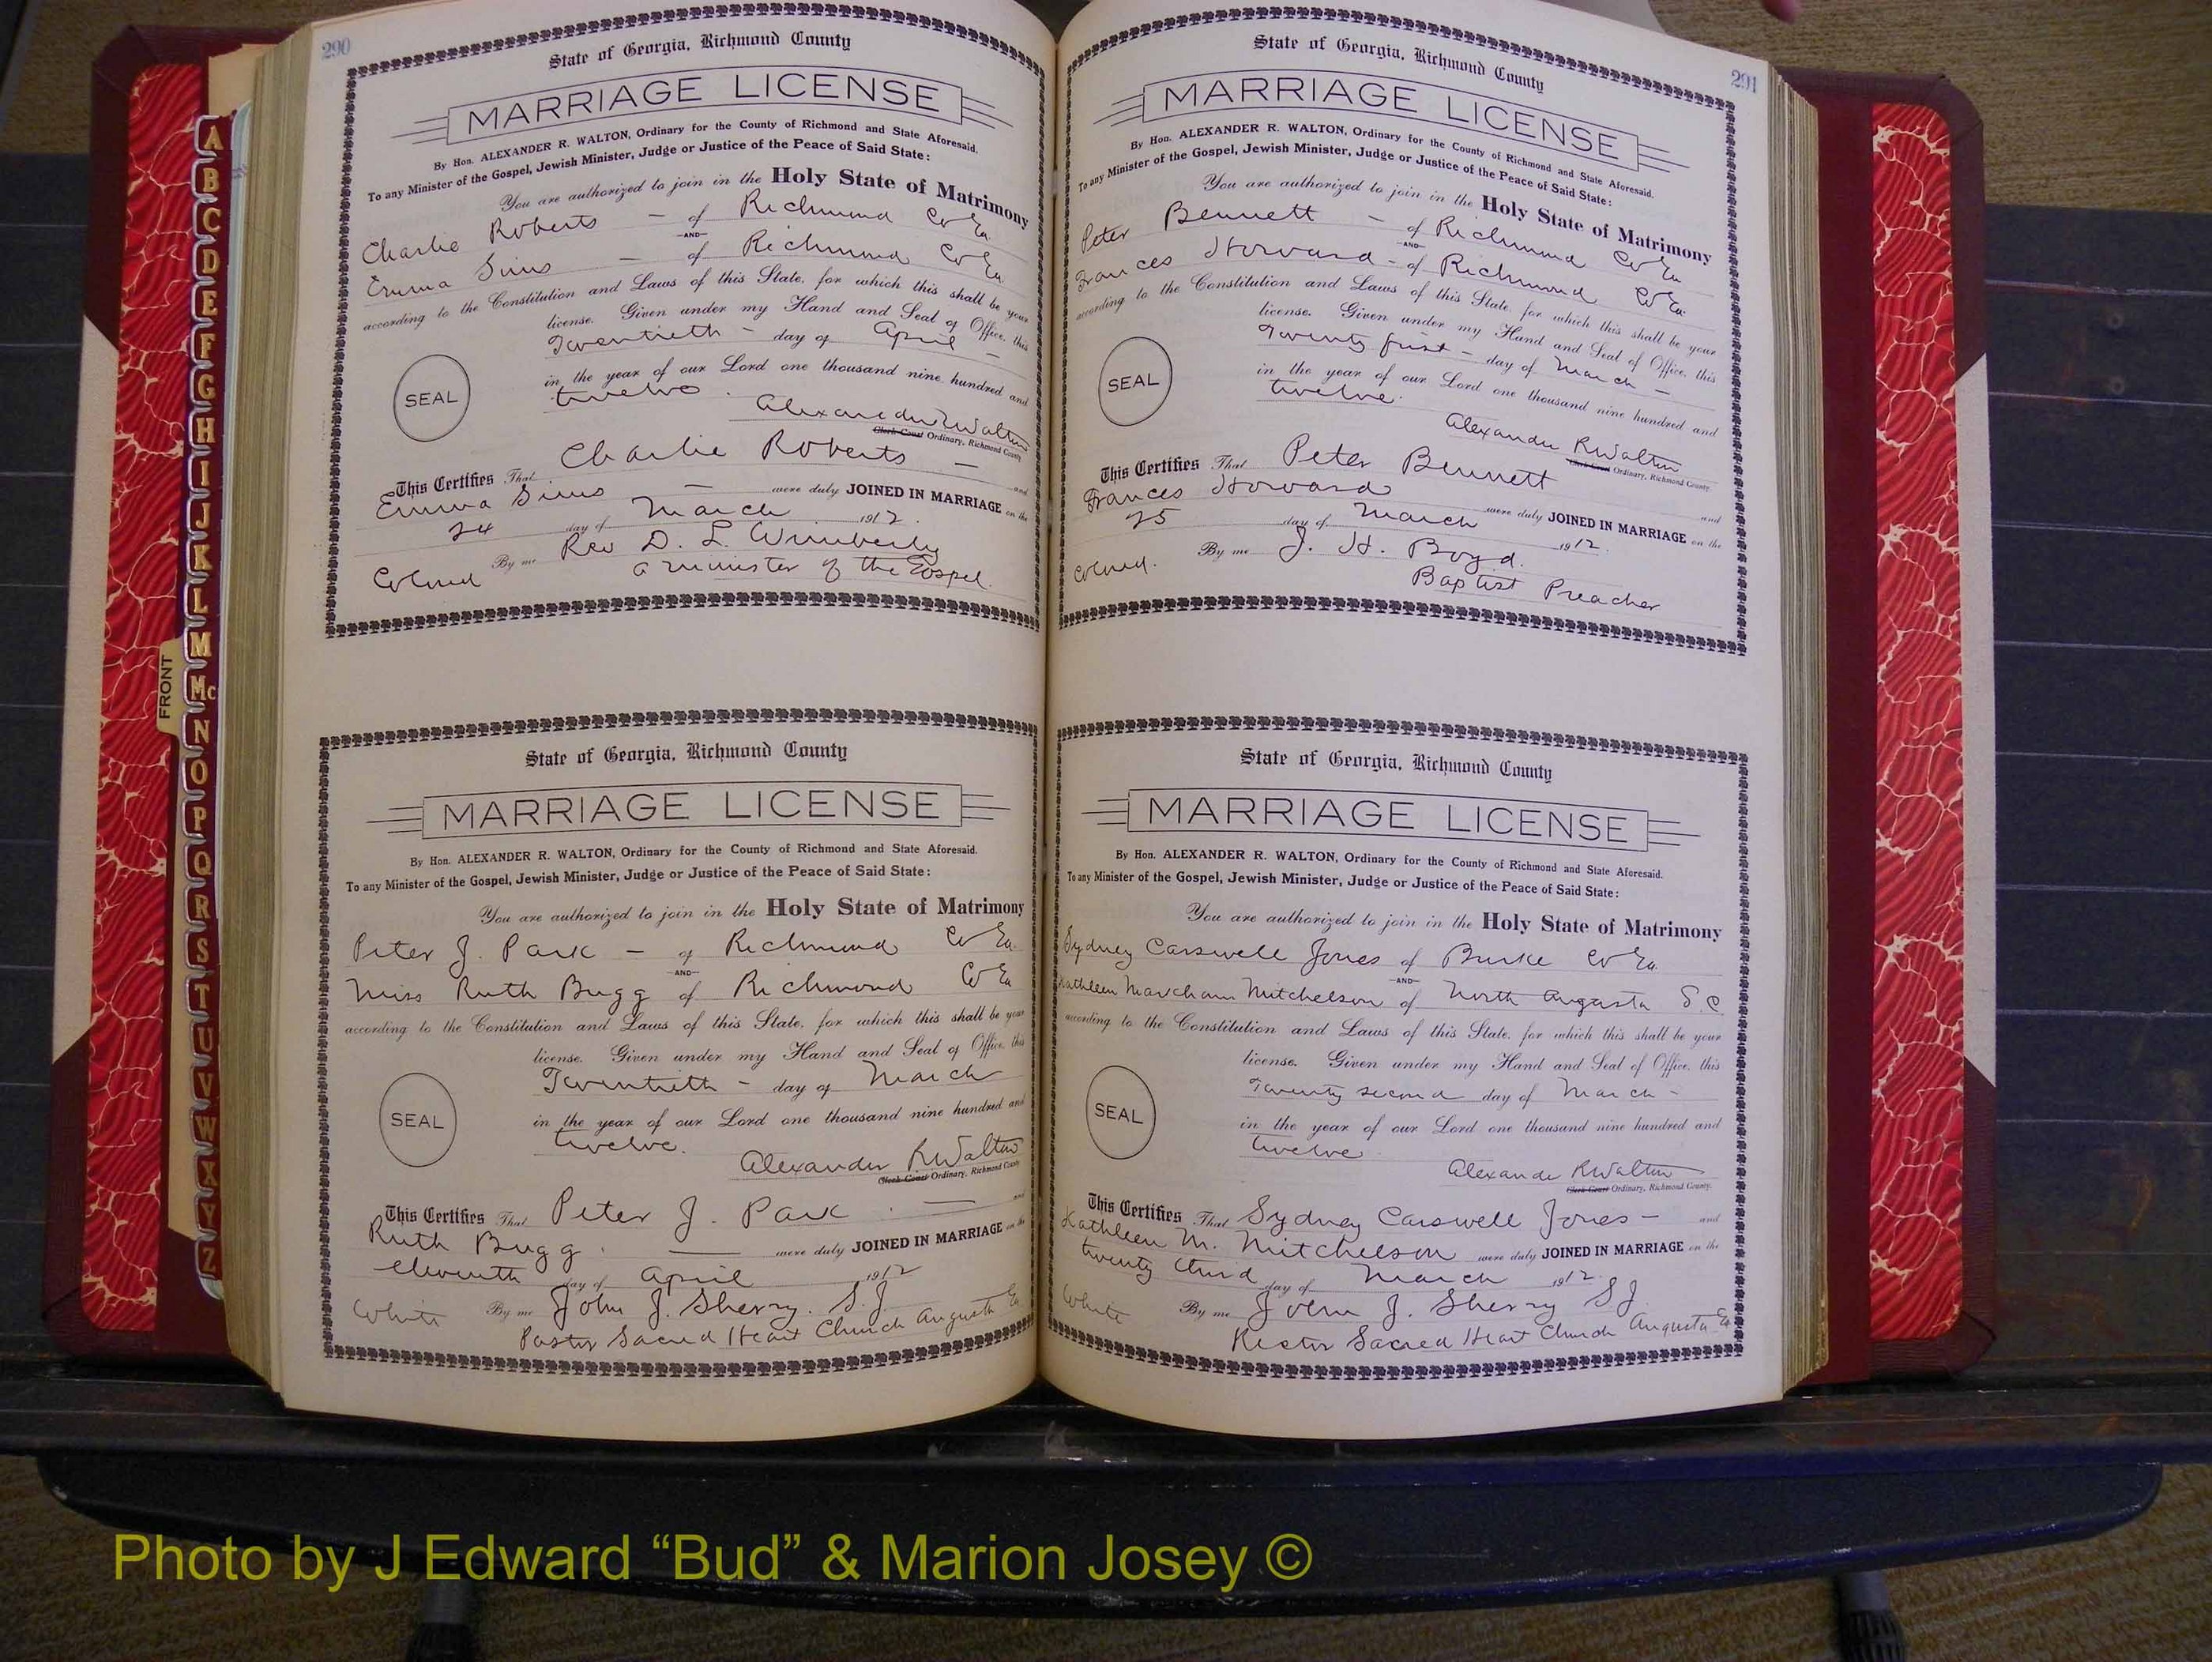 290
State of Georgia, Richmond County
MARRIAGE LICENSE
By Hon. ALEXANDER R. WALTON, Ordinary for the County of Richmond and State Aforesaid.
To any Minister of the Gospel, Jewish Minister, Judge or Justice of the Peace of Said State:
You are authorized to join in the Holy State of Matrimony
Charlie Roberts — of Richmond Co Ga
AND
Emma Sims — of Richmond Co Ga
according to the Constitution and Laws of this State, for which this shall be your
license. Given under my Hand and Seal of Office, this
Twentieth — day of April —
in the year of our Lord one thousand nine hundred and
twelve.
SEAL
Alexander R Walton
Clerk Court Ordinary, Richmond County
This Certifies That Charlie Roberts — and
Emma Sims — were duly JOINED IN MARRIAGE on the
24 day of March 1912.
By me Rev D. L. Wimberly
Colored a minister of the Gospel.
State of Georgia, Richmond County
MARRIAGE LICENSE
By Hon. ALEXANDER R. WALTON, Ordinary for the County of Richmond and State Aforesaid.
To any Minister of the Gospel, Jewish Minister, Judge or Justice of the Peace of Said State:
You are authorized to join in the Holy State of Matrimony
Peter J. Park — of Richmond Co Ga.
AND
Miss Ruth Bugg of Richmond Co Ga
according to the Constitution and Laws of this State, for which this shall be your
license. Given under my Hand and Seal of Office, this
Twentieth — day of March
in the year of our Lord one thousand nine hundred and
twelve.
SEAL
Alexander R Walton
Clerk Court Ordinary, Richmond County
This Certifies That Peter J. Park. — and
Ruth Bugg. — were duly JOINED IN MARRIAGE on the
eleventh day of April 1912
White By me John J. Sherry. S.J.
Pastor Sacred Heart Church Augusta Ga
291
State of Georgia, Richmond County
MARRIAGE LICENSE
By Hon. ALEXANDER R. WALTON, Ordinary for the County of Richmond and State Aforesaid.
To any Minister of the Gospel, Jewish Minister, Judge or Justice of the Peace of Said State:
You are authorized to join in the Holy State of Matrimony
Peter Bennett — of Richmond Co Ga
AND
Frances Howard - of Richmond Co Ga.
according to the Constitution and Laws of this State, for which this shall be your
license. Given under my Hand and Seal of Office, this
Twenty first — day of March —
in the year of our Lord one thousand nine hundred and
twelve.
SEAL
Alexander R Walton
Clerk Court Ordinary, Richmond County.
This Certifies That Peter Bennett and
Frances Howard were duly JOINED IN MARRIAGE on the
25 day of March 1912.
Colored. By me J. H. Boyd.
Baptist Preacher
State of Georgia, Richmond County
MARRIAGE LICENSE
By Hon. ALEXANDER R. WALTON, Ordinary for the County of Richmond and State Aforesaid.
To any Minister of the Gospel, Jewish Minister, Judge or Justice of the Peace of Said State:
You are authorized to join in the Holy State of Matrimony
Sydney Carswell Jones of Burke Co Ga.
AND
Kathleen Markham Mitchelson of North Augusta S.C.
according to the Constitution and Laws of this State, for which this shall be your
license. Given under my Hand and Seal of Office, this
Twenty second day of March -
in the year of our Lord one thousand nine hundred and
twelve
SEAL
Alexander R Walton
Clerk Court Ordinary, Richmond County.
This Certifies That Sydney Carswell Jones — and
Kathleen M. Mitchelson were duly JOINED IN MARRIAGE on the
twenty third day of March 1912.
White By me John J. Sherry SJ.
Rector Sacred Heart Church Augusta Ga
A
B
C
D
E
F
G
H
I
J
K
L
M
Mc
N
O
P
Q
R
S
T
U
V
W
X
Y
Z
FRONT
Photo by J Edward “Bud” & Marion Josey ©